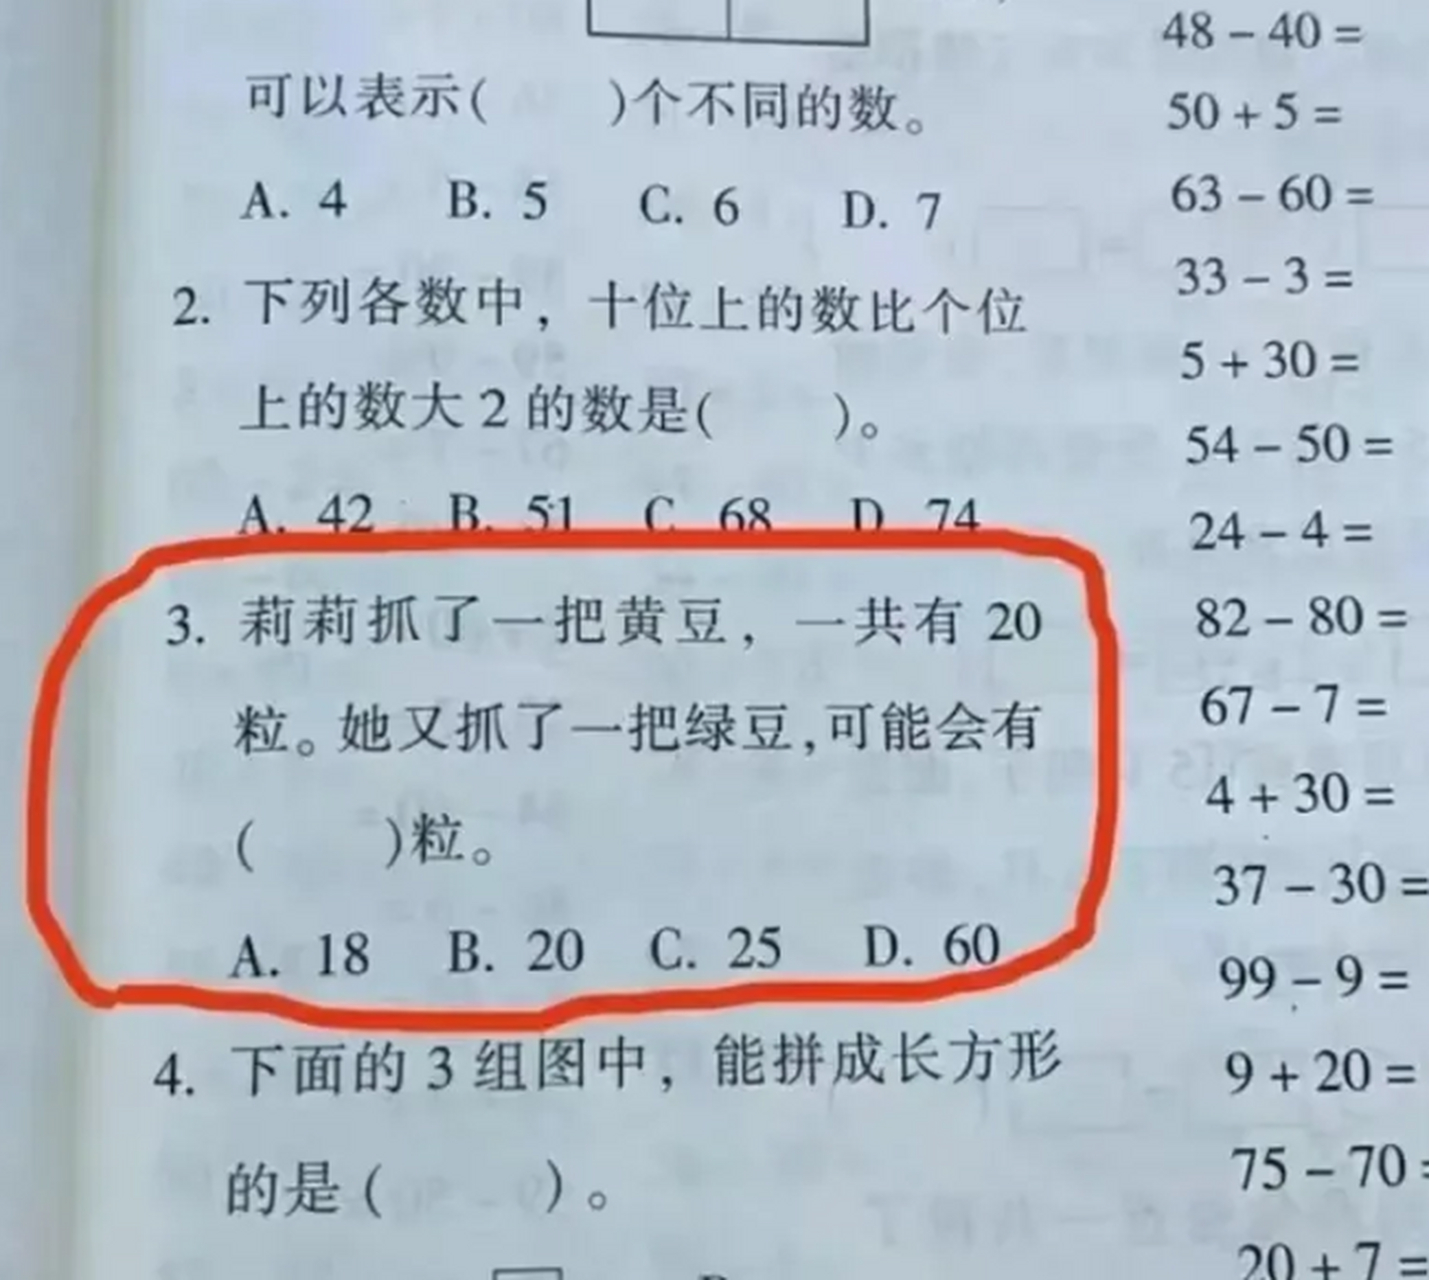 可以表示(　　)个不同的数。
A. 4　B. 5　C. 6　D. 7
2. 下列各数中，十位上的数比个位
上的数大 2 的数是(　　)。
A. 42　B. 51　C. 68　D. 74
3. 莉莉抓了一把黄豆，一共有 20
粒。她又抓了一把绿豆,可能会有
(　　)粒。
A. 18　B. 20　C. 25　D. 60
4. 下面的 3 组图中，能拼成长方形
的是(　　)。
48 − 40 =
50 + 5 =
63 − 60 =
33 − 3 =
5 + 30 =
54 − 50 =
24 − 4 =
82 − 80 =
67 − 7 =
4 + 30 =
37 − 30 =
99 − 9 =
9 + 20 =
75 − 70 =
20 + 7 =